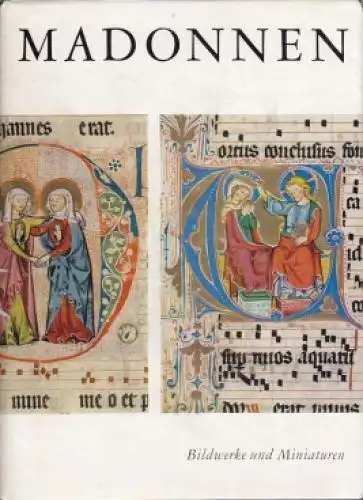 MADONNEN
hannes erat.
mine me o et p
ortus conclusus fon
ca
id
aquarū
Bildwerke und Miniaturen